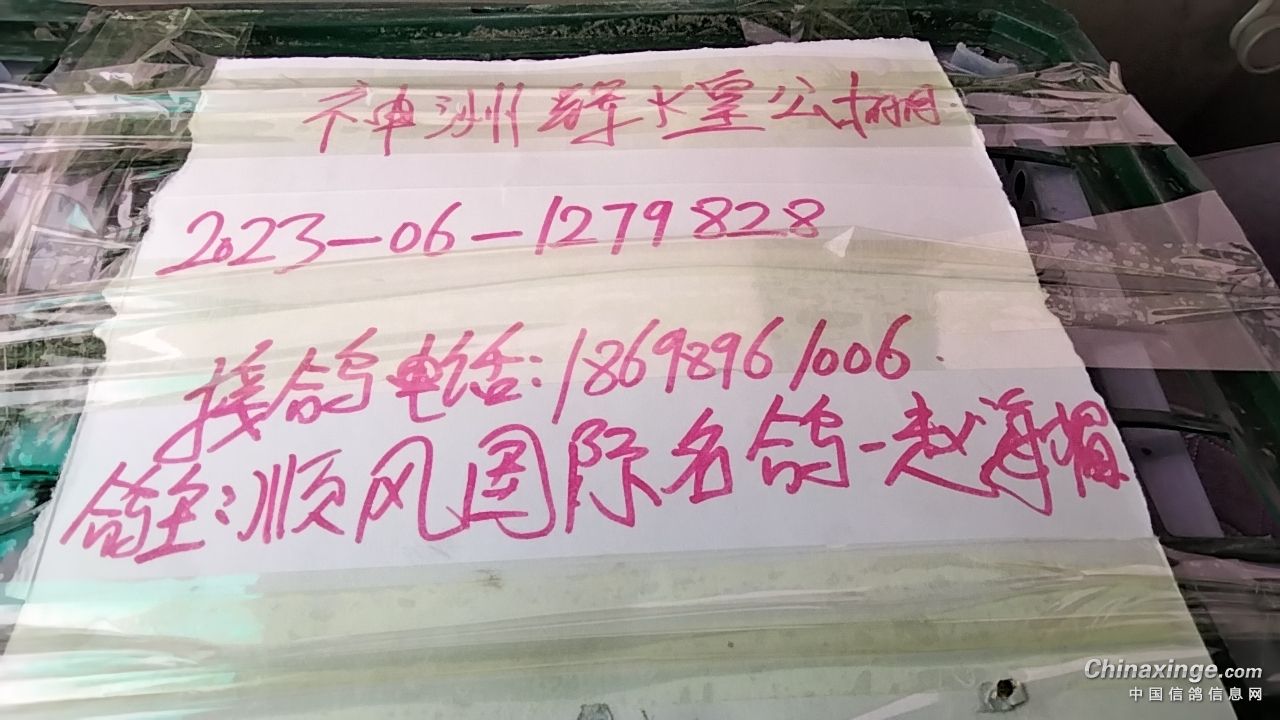 神洲辉煌公棚
2023-06-1279828
接鸽电话:18698961006.
鸽主:顺风国际名鸽-赵海
Chinaxinge.com
中国信鸽信息网